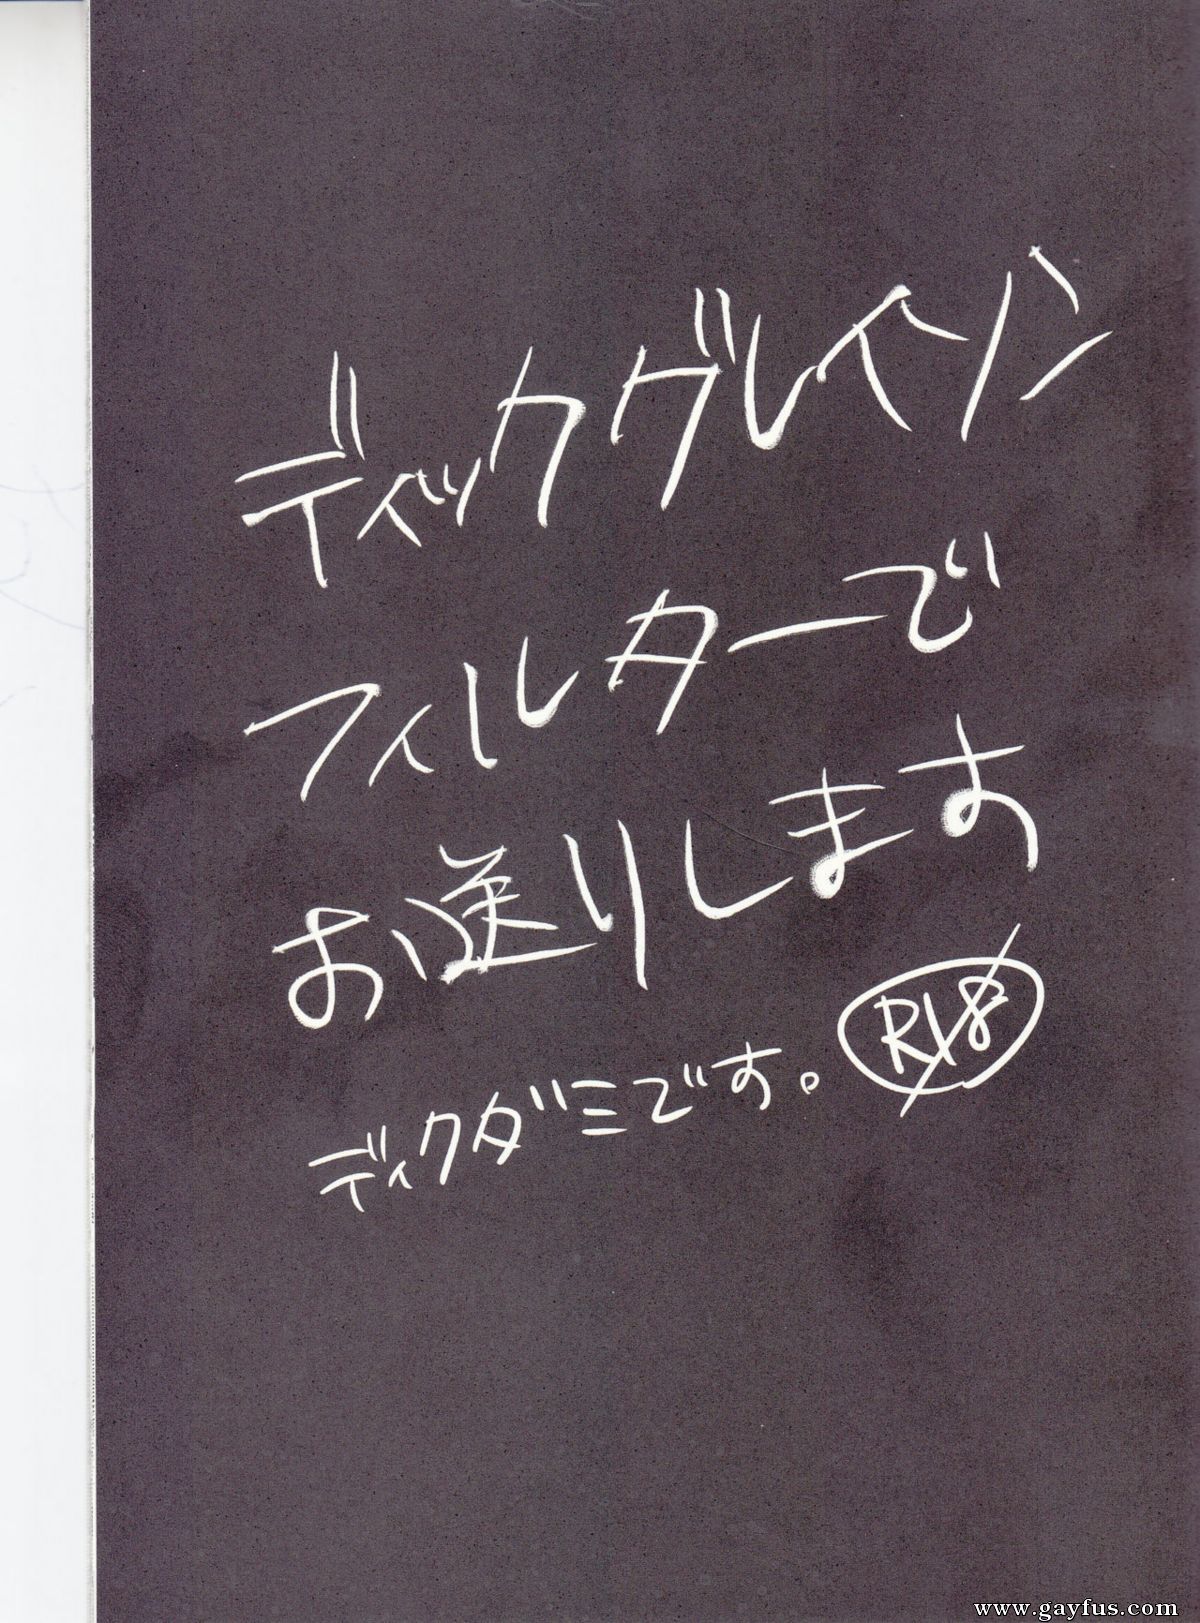 ディックグレイソン
フィルターで
お送りします
ディクダミです。 R18
www.gayfus.com